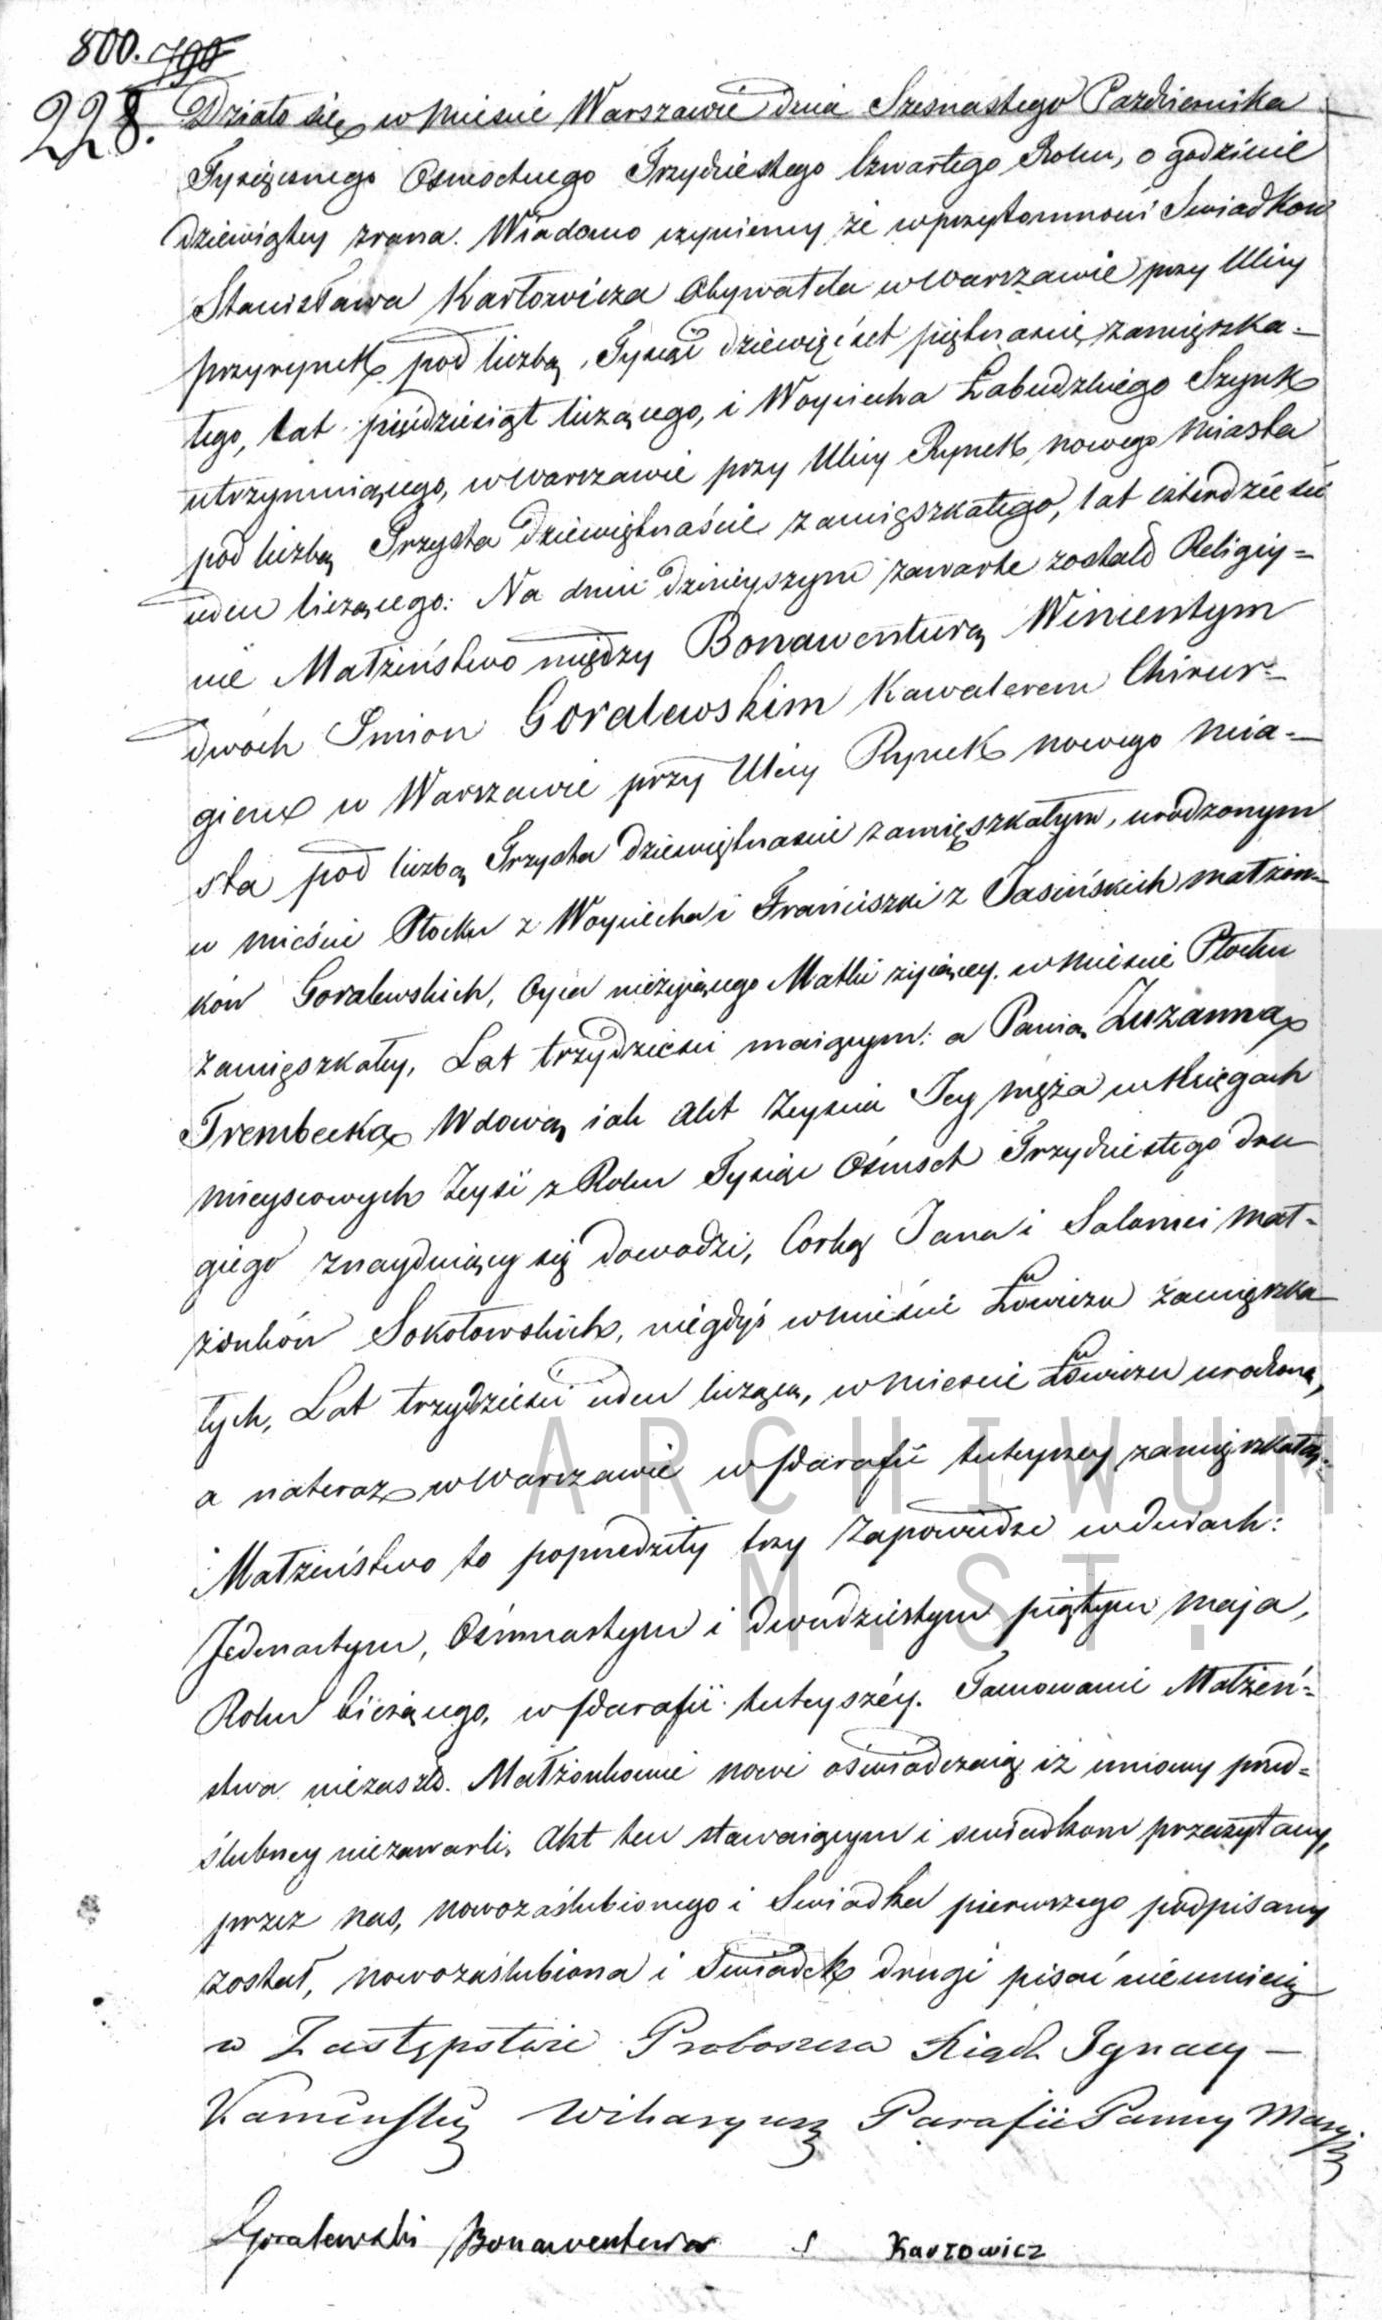 800. 790
228. Działo się w Mieście Warszawie dnia Szesnastego Pazdziernika
Tysiącznego Osmsetnego Trzydziestego Czwartego Roku, o godzinie
dziewiątey zrana. Wiadomo czyniemy że w przytomności Swiadkow
Stanisława Karłowicza Obywatela w Warszawie przy Ulicy
przyrynek pod liczbą Tysiąc dziewięćset piętnaście zamięszka-
łego, Lat pięćdziesiąt liczącego, i Woyciecha Łabudzkiego Szynk
utrzymuiącego, w Warszawie przy Ulicy Rynek nowego Miasta
pod liczbą Trzysta dziewiętnaście zamięszkałego, lat czterdzieści
ieden liczącego: Na dniu dzisieyszym zawarte zostało Religiy=
nie Małżeństwo między Bonawenturą Wincentym
dwóch Imion Goralewskim Kawalerem Chirur=
giem w Warszawie przy Ulicy Rynek nowego Mia=
sta pod liczbą Trzysta dziewiętnaście zamięszkałym, urodzonym
w Mieście Płocku z Woyciecha i Franciszki z Jasińskich małżon=
ków Goralewskich, Oyca nieżyiącego Matki żyiącey w Mieście Płocku
zamięszkałey, Lat trzydzieści maiącym: a Panią Zuzanną
Trembecką Wdową iak Akt Zeyscia Jey męża w Księgach
Mieyscowych Zeyść z Roku Tysiąc Ośmset Trzydziestego dru
giego znayduiący się dowodzi, Corką Jana i Salomei Mał=
żonków Sokołowskich, niegdyś w Mieście Łowiczu zamięszka
łych, Lat trzydzieści ieden liczącą, w Mieście Łowiczu urodzoną,
a nateraz w Warszawie w Parafii tuteyszey zamięszkałą.=
Małżeństwo to poprzedziły trzy Zapowiedzi w dniach:
Jedenastym, Ośmnastym i dwudziestym piątym Maja,
Roku bieżącego, w Parafii tuteyszéy. Tamowanie Małżeń=
stwa niezaszło. Małżonkowie nowi oświadczaią iż umowy przed=
ślubney niezawarli. Akt ten stawaiącym i swiadkom przeczytany,
przez nas, nowozaślubionego i Swiadka pierwszego podpisany
został, nowozaślubiona i Swiadek drugi pisać nieumieią
w Zastępstwie Proboszcza Xiądz Ignacy —
Kaminski Wikaryusz Parafii Panny Maryi
Goralewski Bonawentura S Karłowicz
ARCHIWUM
M ST.